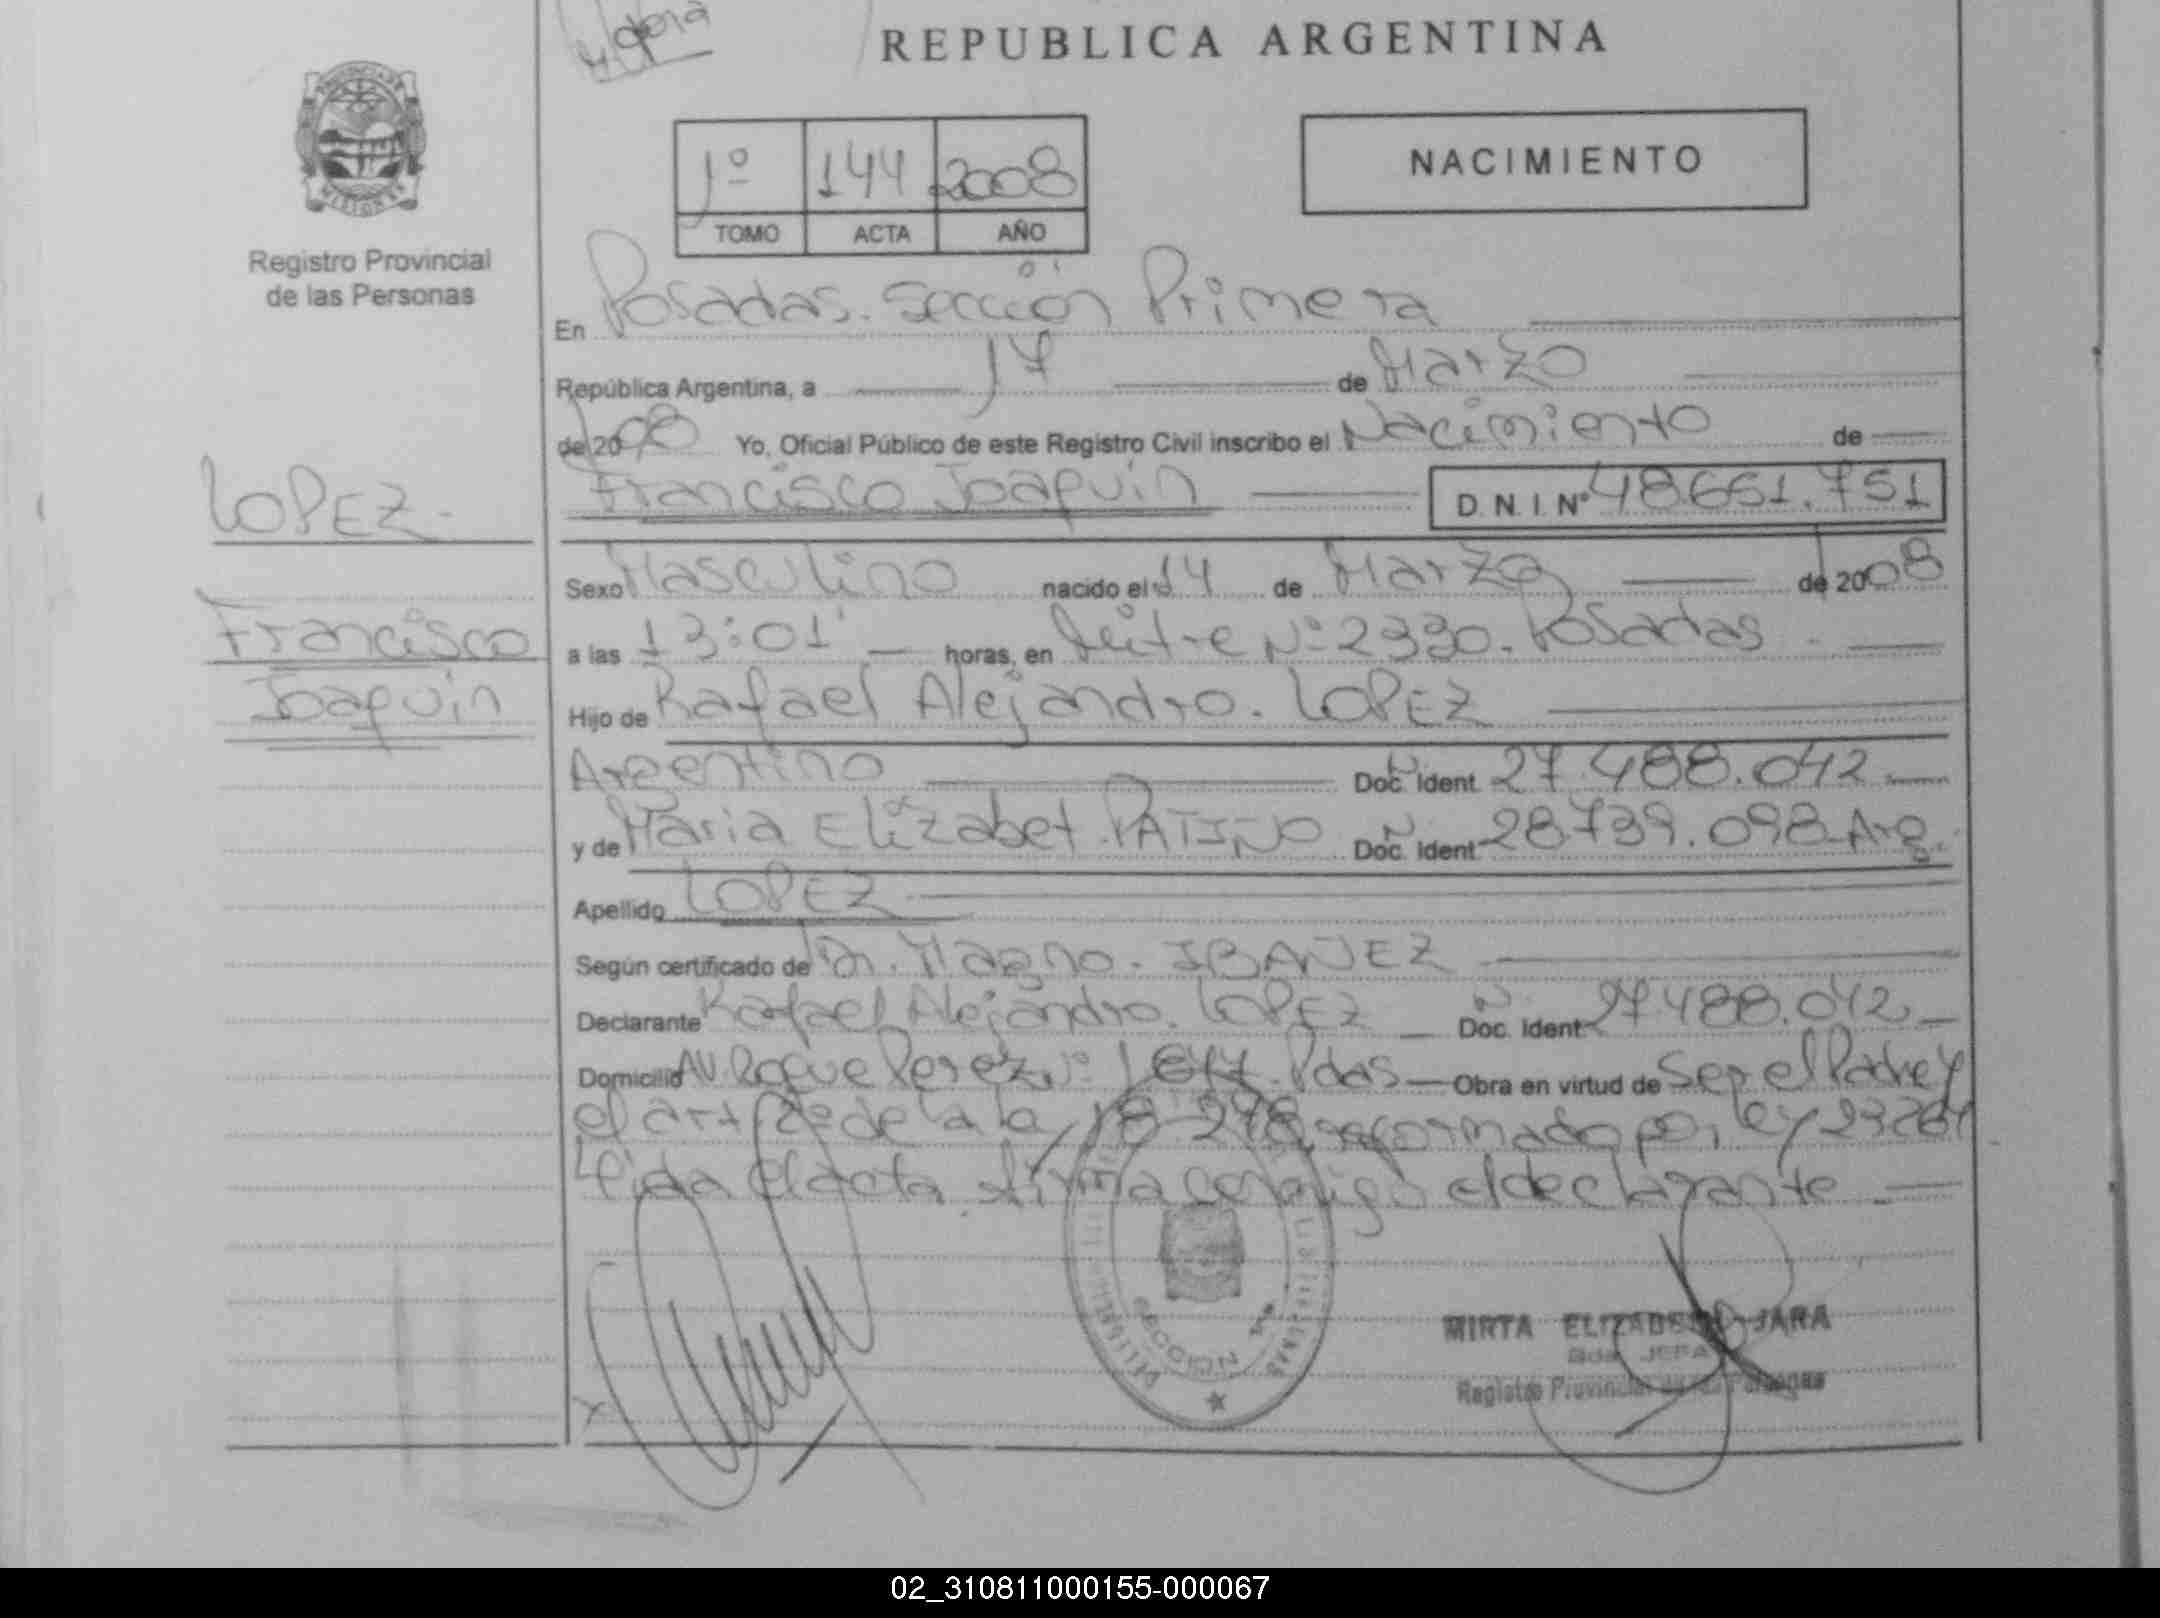 REPUBLICA ARGENTINA
1º 144 2008
TOMO ACTA AÑO
NACIMIENTO
Registro Provincial
de las Personas
En Posadas. Sección Primera
República Argentina, a 17 de Marzo
de 2008 Yo, Oficial Público de este Registro Civil inscribo el Nacimiento de
Francisco Joaquín D. N. I. Nº 48651.751
LOPEZ
Francisco
Joaquín
Sexo Masculino nacido el 14 de Marzo de 2008
a las 13:01 horas, en Mitre Nº 2330. Posadas
Hijo de Rafael Alejandro. LOPEZ
Argentino Doc. Ident. 27.488.042
y de Maria Elizabet PATIÑO Doc. Ident. 28739.098 Arg.
Apellido LOPEZ
Según certificado de Dr. Magno. IBAÑEZ
Declarante Rafael Alejandro. LOPEZ Doc. Ident. 27488.042
Domicilio AV Roque Perez Nº 1647. Pdas Obra en virtud de Ser el Padre y
el art 2º de la 18-248 reformado por ley 23264
Leida el acta firma conmigo el declarante
MIRTA ELIZABETH JARA
JEFA
Registro Provincial de las Personas
02_310811000155-000067